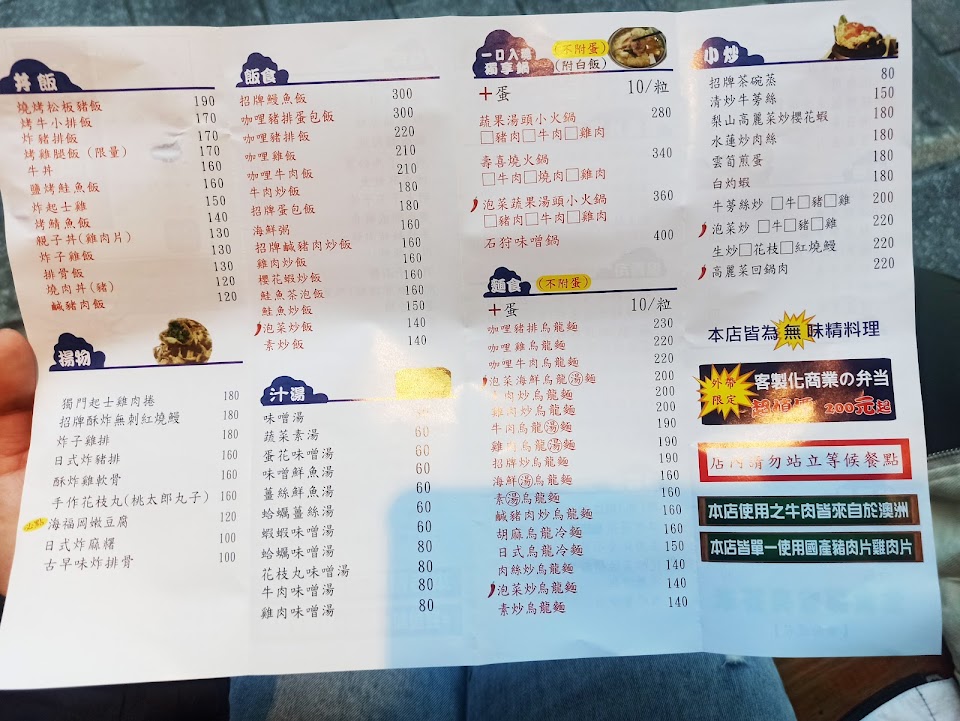 丼飯
燒烤松板豬飯 190
烤牛小排飯 170
炸豬排飯 170
烤雞腿飯 (限量) 170
牛丼 160
鹽烤鮭魚飯 160
炸起士雞 150
烤鯖魚飯 140
親子丼(雞肉片) 130
炸子雞飯 130
排骨飯 130
燒肉丼(豬) 120
鹹豬肉飯 120
揚物
獨門起士雞肉捲 180
招牌酥炸無刺紅燒鰻 180
炸子雞排 180
日式炸豬排 160
酥炸雞軟骨 160
手作花枝丸(桃太郎丸子) 160
海福岡嫩豆腐 120
日式炸麻糬 100
古早味炸排骨 100
飯食
招牌鰻魚飯 300
咖哩豬排蛋包飯 300
咖哩豬排飯 220
咖哩雞飯 210
咖哩牛肉飯 210
牛肉炒飯 180
招牌蛋包飯 180
海鮮粥 160
招牌鹹豬肉炒飯 160
雞肉炒飯 160
櫻花蝦炒飯 160
鮭魚茶泡飯 160
鮭魚炒飯 150
泡菜炒飯 140
素炒飯 140
汁湯
味噌湯
蔬菜素湯 60
蛋花味噌湯 60
味噌鮮魚湯 60
薑絲鮮魚湯 60
蛤蠣薑絲湯
蝦蝦味噌湯
蛤蠣味噌湯 80
花枝丸味噌湯 80
牛肉味噌湯 80
雞肉味噌湯 80
一口入魂
獨享鍋
(不附蛋)
(附白飯)
十蛋 10/粒
蔬果湯頭小火鍋 280
□豬肉□牛肉□雞肉
壽喜燒火鍋 340
□牛肉□燒肉□雞肉
泡菜蔬果湯頭小火鍋 360
□豬肉□牛肉□雞肉
石狩味噌鍋 400
麵食
(不附蛋)
十蛋 10/粒
咖哩豬排烏龍麵 230
咖哩雞烏龍麵 220
咖哩牛肉烏龍麵 220
泡菜海鮮烏龍湯麵 200
牛肉炒烏龍麵 200
雞肉炒烏龍麵 200
牛肉烏龍湯麵 190
雞肉烏龍湯麵 190
招牌炒烏龍麵 190
海鮮湯烏龍麵 160
素湯烏龍麵 160
鹹豬肉炒烏龍麵 160
胡麻烏龍冷麵 160
日式烏龍冷麵 150
肉絲炒烏龍麵 140
泡菜炒烏龍麵 140
素炒烏龍麵 140
小炒
招牌茶碗蒸 80
清炒牛蒡絲 150
梨山高麗菜炒櫻花蝦 180
水蓮炒肉絲 180
雲筍煎蛋 180
白灼蝦 180
牛蒡絲炒 □牛□豬□雞 200
泡菜炒 □牛□豬□雞 220
生炒□花枝□紅燒鰻 220
高麗菜回鍋肉 220
本店皆為 無 味精料理
外帶
限定
客製化商業の弁当
超值價 200元起
店內請勿站立等候餐點
本店使用之牛肉皆來自於澳洲
本店皆單一使用國產豬肉片雞肉片